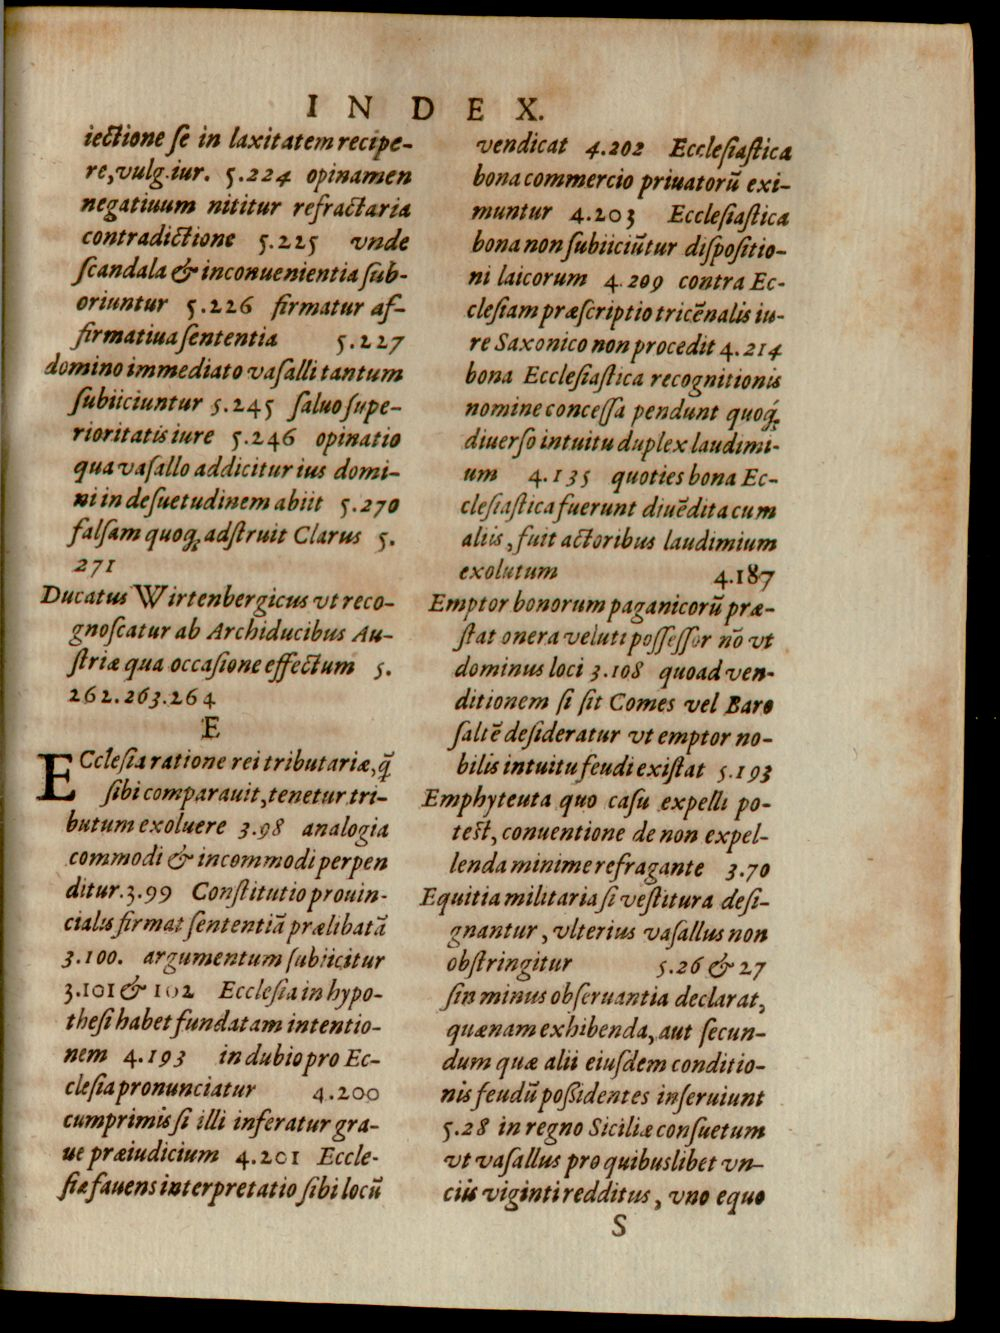 INDEX.
iectione ſe in laxitatem recipe-
re, vulg. iur. 5.224 opinamen
negatiuum nititur refractaria
contradictione 5.225 vnde
ſcandala & inconuenientia ſub-
oriuntur 5.226 firmatur af-
firmatiua ſententia 5.227
domino immediato vaſalli tantum
ſubiiciuntur 5.245 ſaluo ſupe-
rioritatis iure 5.246 opinatio
qua vaſallo addicitur ius domi-
ni in deſuetudinem abiit 5.270
falſam quoq; adſtruit Clarus 5.
271
Ducatus Wirtenbergicus vt reco-
gnoſcatur ab Archiducibus Au-
ſtriæ qua occaſione effectum 5.
262.263.264
E
ECcleſia ratione rei tributariæ, q̃
ſibi comparauit, tenetur tri-
butum exoluere 3.98 analogia
commodi & incommodi perpen
ditur. 3.99 Conſtitutio prouin-
cialis firmat ſententiã prælibatã
3.100. argumentum ſubiicitur
3.101 & 102 Eccleſia in hypo-
theſi habet fundatam intentio-
nem 4.193 in dubio pro Ec-
cleſia pronunciatur 4.200
cumprimis ſi illi inferatur gra-
ue præiudicium 4.201 Eccle-
ſiæ fauens interpretatio ſibi locũ
vendicat 4.202 Eccleſiaſtica
bona commercio priuatorũ exi-
muntur 4.203 Eccleſiaſtica
bona non ſubiiciũtur diſpoſitio-
ni laicorum 4.209 contra Ec-
cleſiam præſcriptio tricẽnalis iu-
re Saxonico non procedit 4.214
bona Eccleſiaſtica recognitionis
nomine conceſſa pendunt quoq́;
diuerſo intuitu duplex laudimi-
um 4.135 quoties bona Ec-
cleſiaſtica fuerunt diuẽdita cum
aliis, fuit actoribus laudimium
exolutum 4.187
Emptor bonorum paganicorũ præ-
ſtat onera veluti poſſeſſor nõ vt
dominus loci 3.108 quoad ven-
ditionem ſi ſit Comes vel Baro
ſaltẽ deſideratur vt emptor no-
bilis intuitu feudi exiſtat 5.193
Emphyteuta quo caſu expelli po-
teſt, conuentione de non expel-
lenda minime refragante 3.70
Equitia militaria ſi veſtitura deſi-
gnantur, vlterius vaſallus non
obſtringitur 5.26 & 27
ſin minus obſeruantia declarat,
quænam exhibenda, aut ſecun-
dum quæ alii eiuſdem conditio-
nis feudũ poſſidentes inſeruiunt
5.28 in regno Siciliæ conſuetum
vt vaſallus pro quibuslibet vn-
ciis viginti redditus, vno equo
S